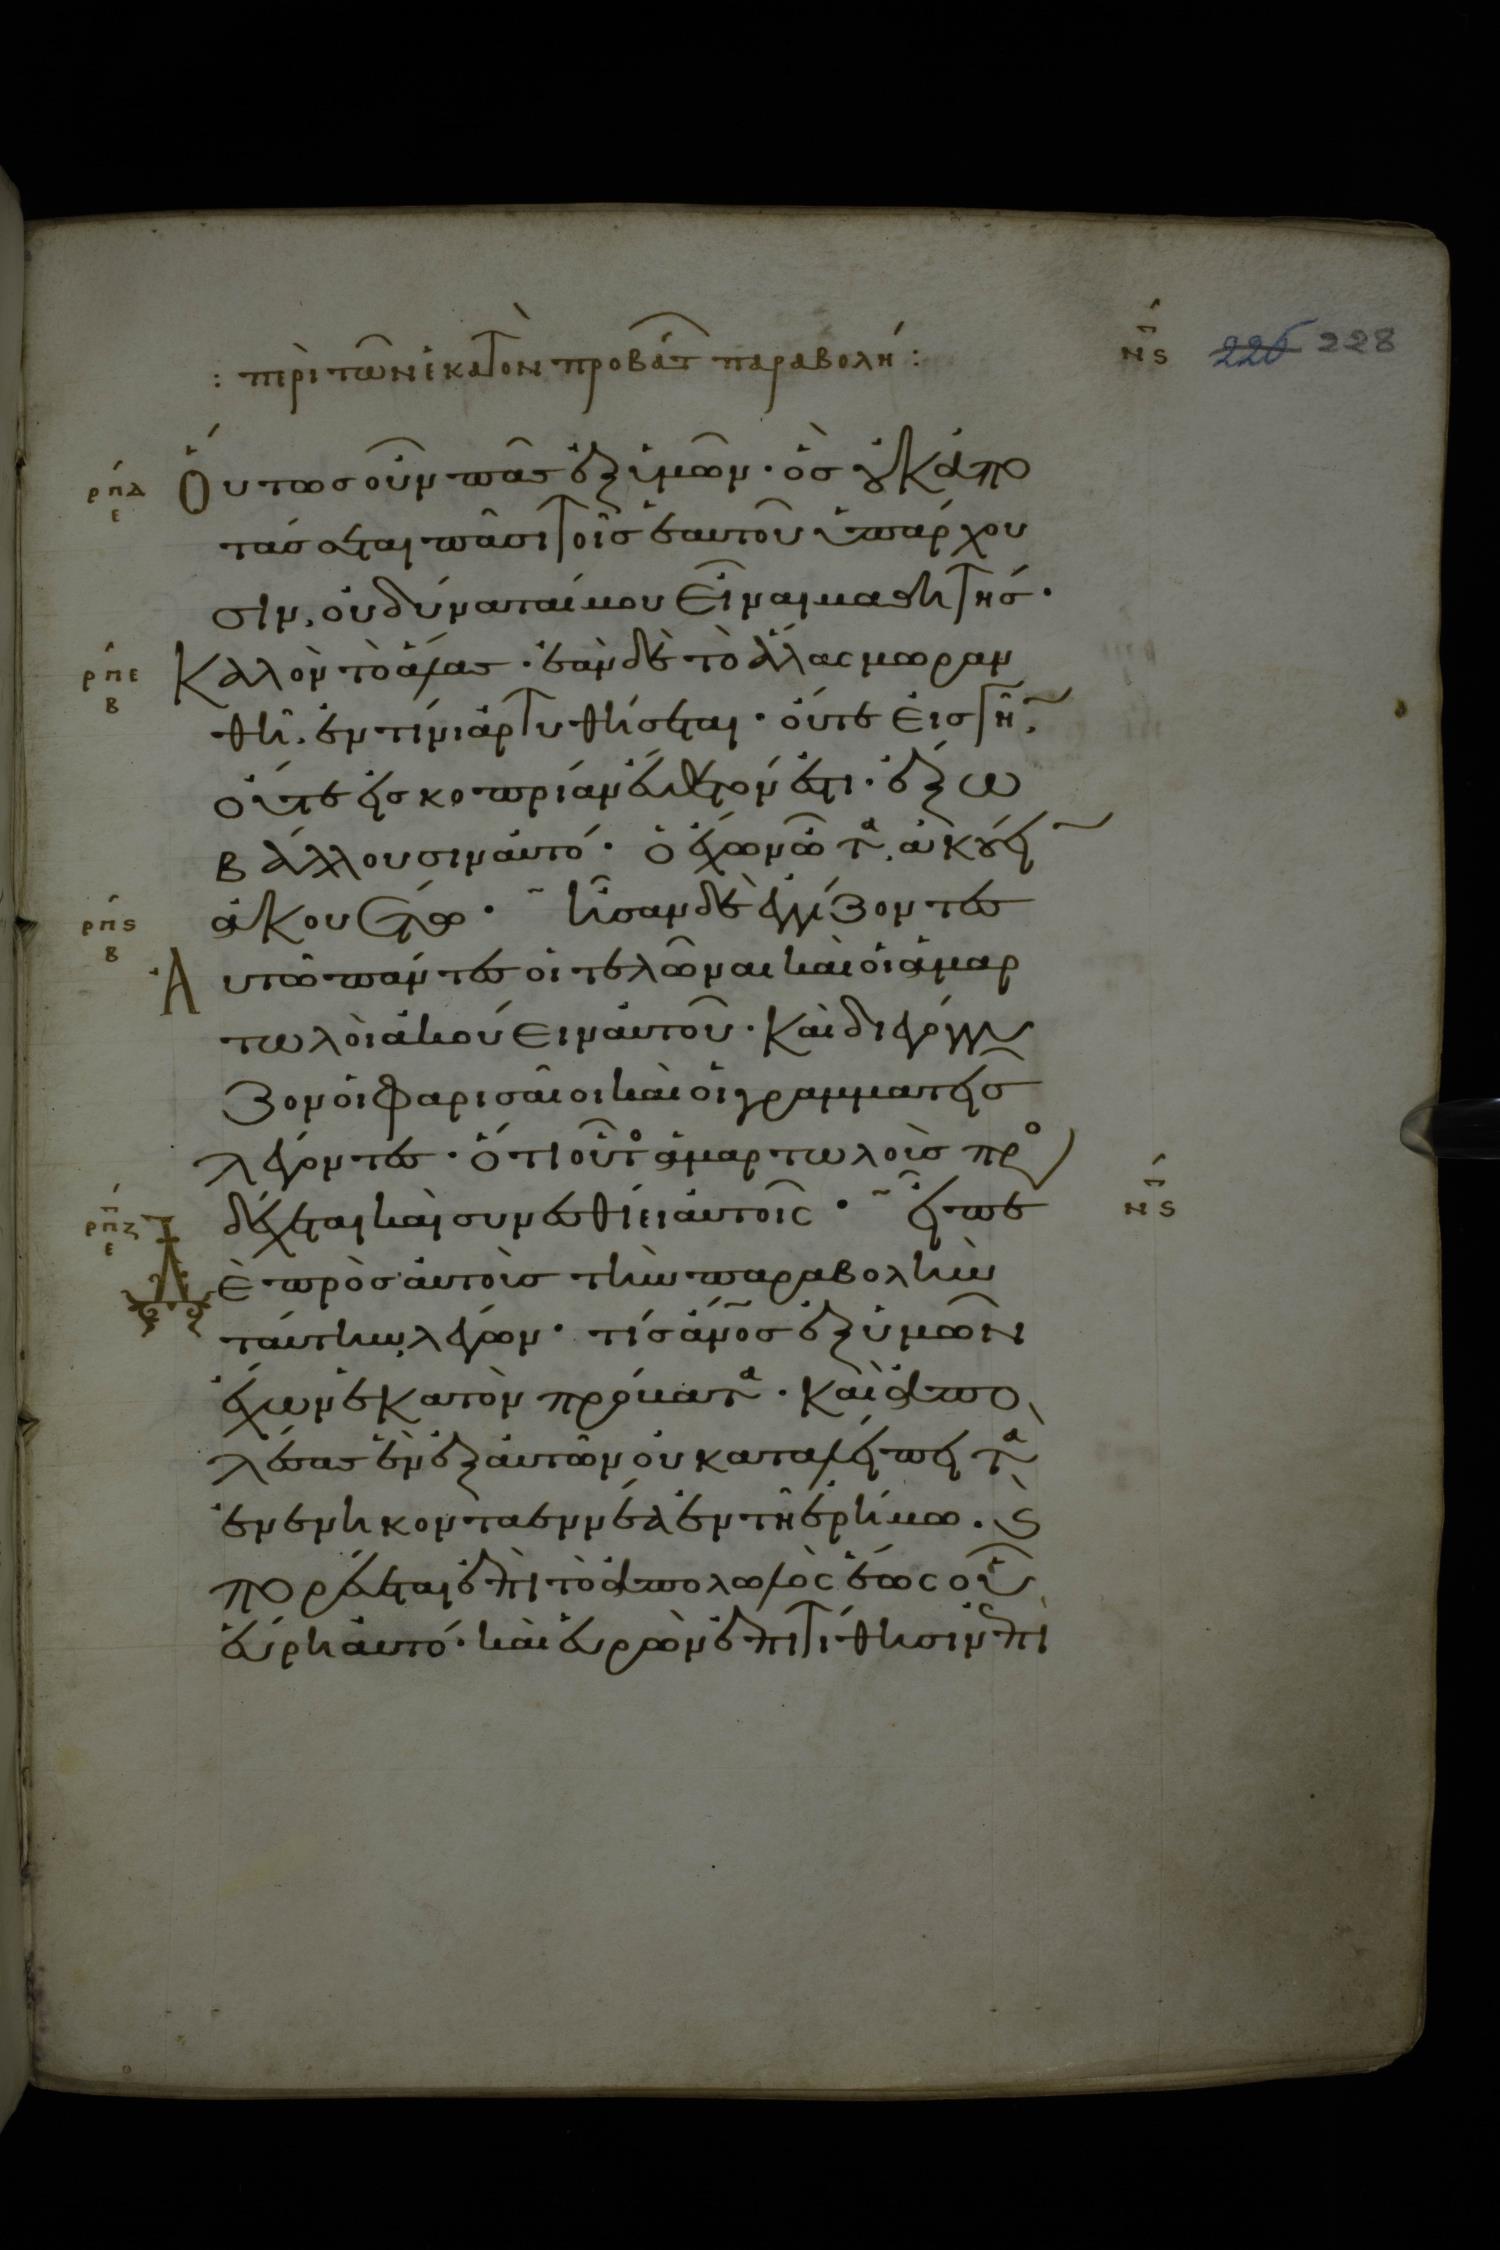 : περὶ τῶν ἑκατὸν προβάτ παραβολή :
ν̅ς
226 228
ρπδ
ε
Οὕτως οὖν πᾶς ἐξ ὑμῶν · ὃς οὐκ ἀπο
τάσσεται πᾶσι τοῖς ἑαυτοῦ ὑπάρχου
σιν, οὐ δύναται μου εἶναι μαθητής ·
ρπε
β
Καλὸν τὸ ἅλας · ἐὰν δὲ τὸ ἅλας μωραν
θῆ, ἐν τίνι ἀρτυθήσεται · οὔτε εἰς γῆ̅,
οὔτε εἰς κοπρίαν εὔθετόν ἐστι · ἔξω
βάλλουσιν αὐτό · ὁ ἔχων ὦτα, ἀκούει̅
ἀκουέτω · ἦσαν δὲ ἐγγίζοντες
ρπς
β
Αὐτῶ πάντες οἱ τελῶναι καὶ οἱ ἁμαρ
τωλοὶ ἀκούειν αὐτοῦ · καὶ διεγόγγυ
ζον οἱ φαρισαῖοι καὶ οἱ γραμματεῖς
λέγοντες · ὅτι οὗτο ἁμαρτωλοὺς προ
δέχεται καὶ συνεσθίει αὐτοῖς · εἶπε
ρπζ
ε
ν̅ς
Δὲ πρὸς αὐτοὺς τὴν παραβολὴν
ταύτην, λέγων · τίς α̅νος ἐξ ὑμῶν
ἔχων ἑκατὸν πρόβατα · καὶ ἀπο
λέσας ἓν ἐξ αὐτῶν οὐ καταλείπει τα
ἐνενηκονταεννέα ἐν τῆ ἐρήμω · ϛ
πορεύεται ἐπὶ τὸ ἀπολωλὸς ἕως οὗ
εὕρη αὐτό · καὶ εὑρὼν ἐπιτίθησιν ἐπὶ